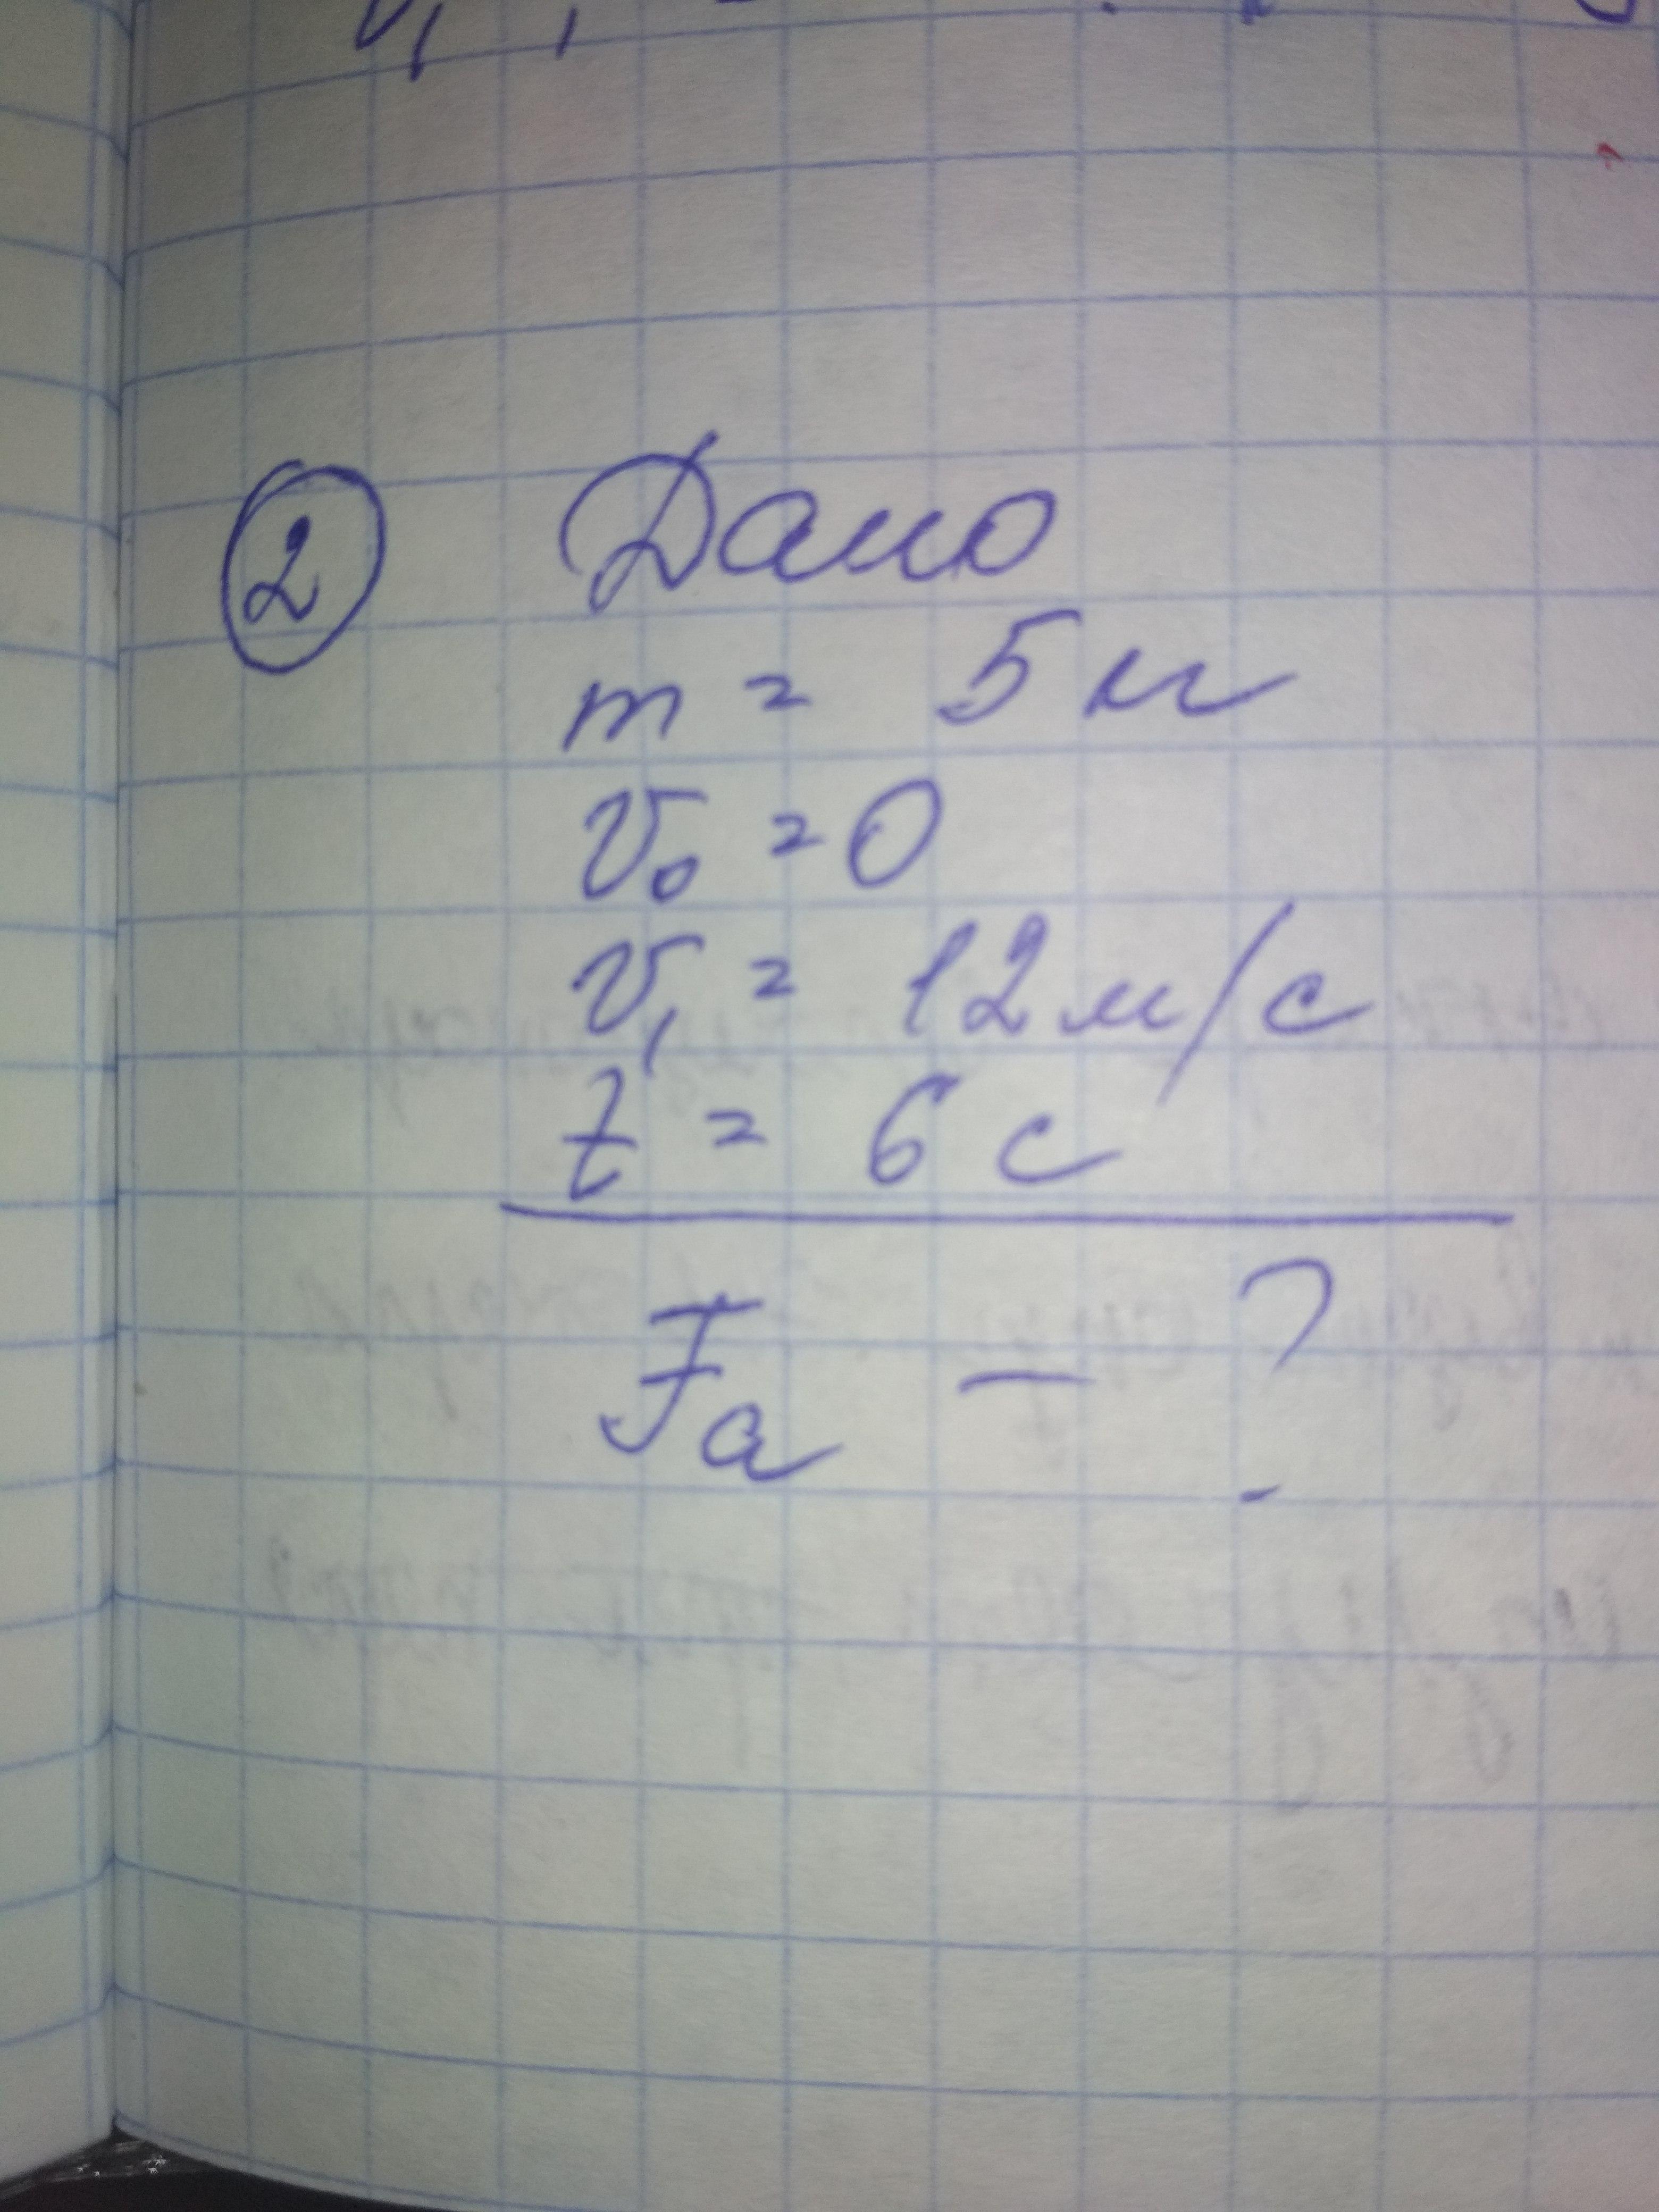 ② Дано
m = 5 кг
v₀ = 0
v₁ = 12 м/с
t = 6 с
Fа – ?